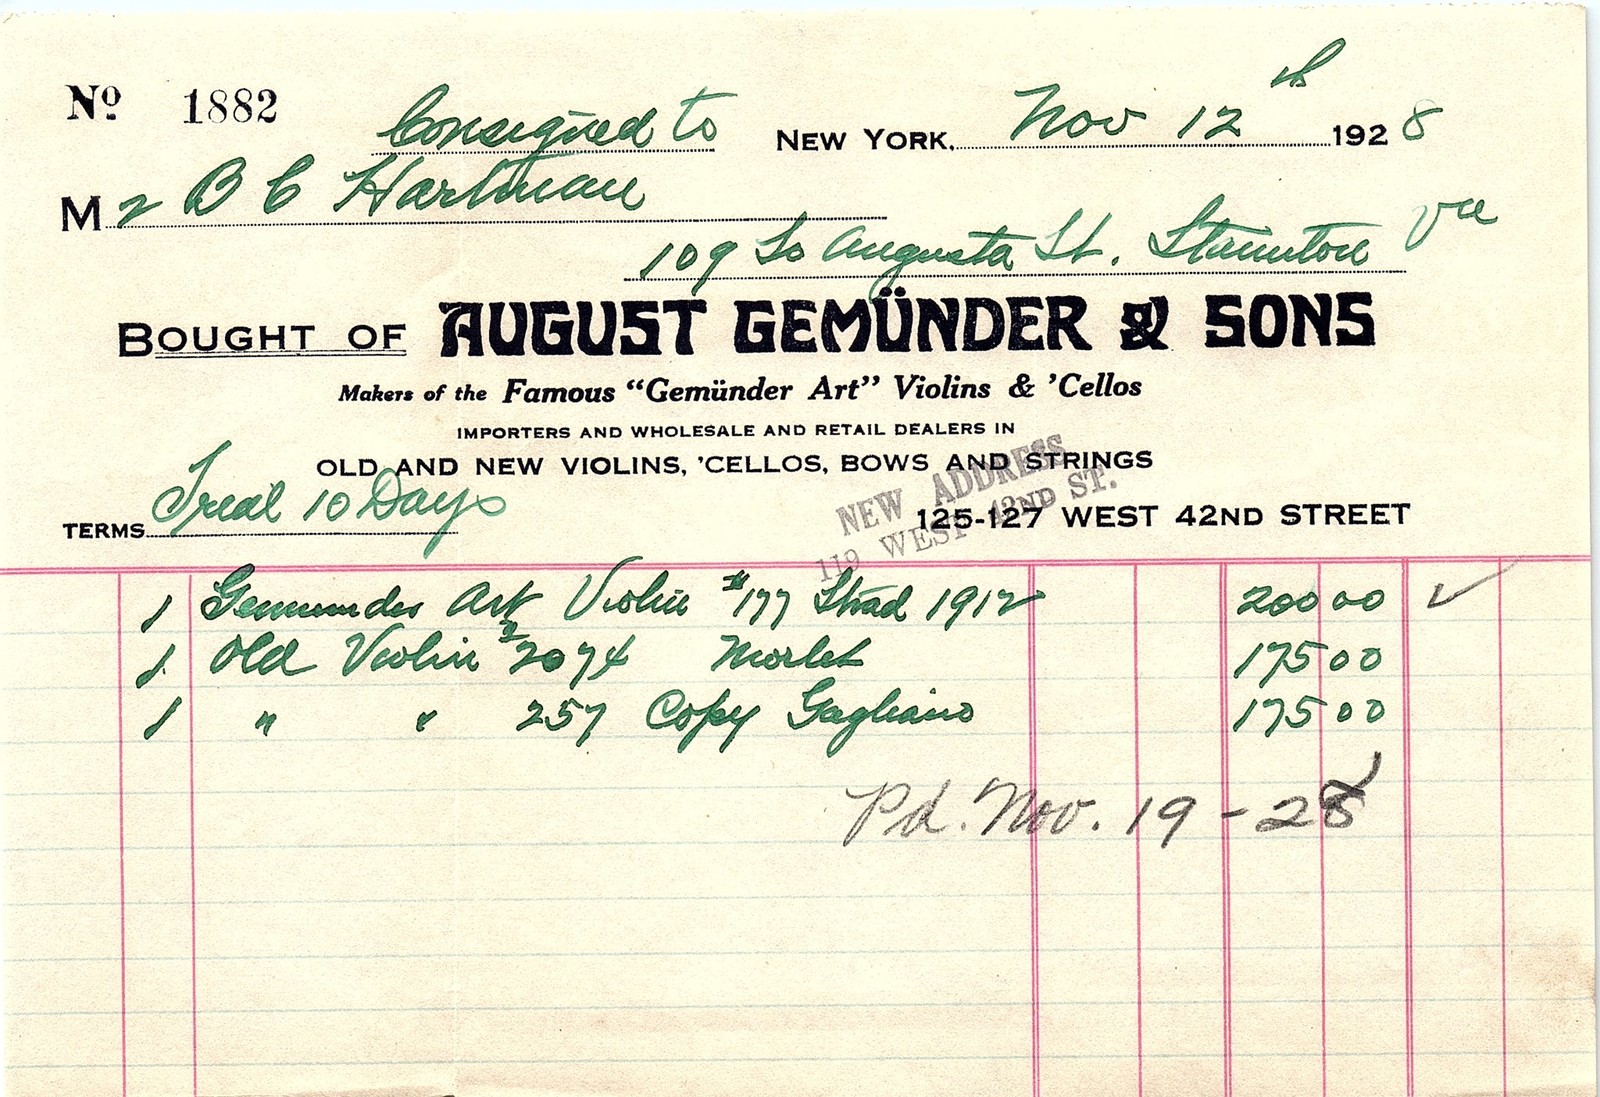 Nº 1882
Consigned to
New York, Nov 12th 1928
Mr B C Hartman
109 So Augusta St. Staunton Va
Bought of AUGUST GEMÜNDER & SONS
Makers of the Famous “Gemünder Art” Violins & ’Cellos
IMPORTERS AND WHOLESALE AND RETAIL DEALERS IN
OLD AND NEW VIOLINS, ’CELLOS, BOWS AND STRINGS
NEW ADDRESS
119 WEST 42ND ST.
TERMS Trial 10 Days
125-127 WEST 42ND STREET
1 Gemunder Art Violin #177 Strad 1912 200 00 ✓
1 Old Violin 2074 Morlet 175 00
1 " " 257 Copy Gagliano 175 00
Pd. Nov. 19 - 28